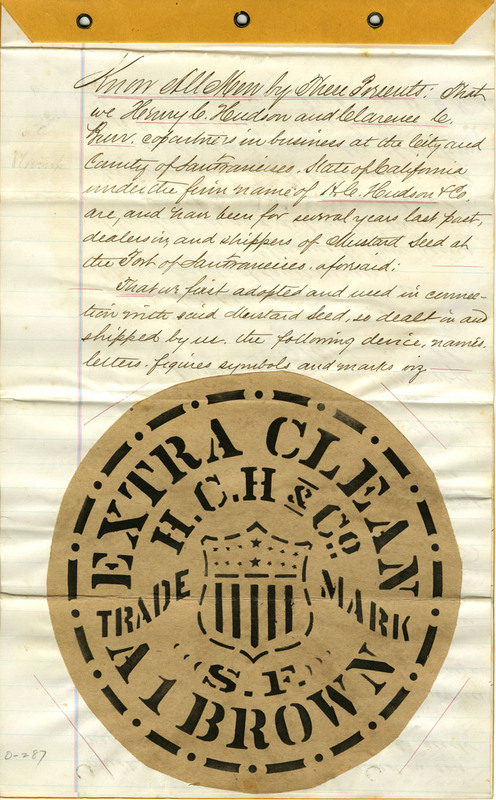 Know All Men by These Presents: That
we Henry C. Hudson and Clarence C.
Burr. copartners in business at the City and
County of San Francisco. State of California
under the firm name of H. C. Hudson & Co.
are, and have been for several years last past,
dealers in, and shippers of Mustard Seed at
the Port of San Francisco. aforsaid;
That we first adopted and used in connec-
tion with said Mustard Seed, so dealt in and
shipped by us. the following device, names.
letters. figures symbols and marks viz
EXTRA CLEAN
H.C.H & Co
TRADE MARK
S.F.
A 1 BROWN
0-287